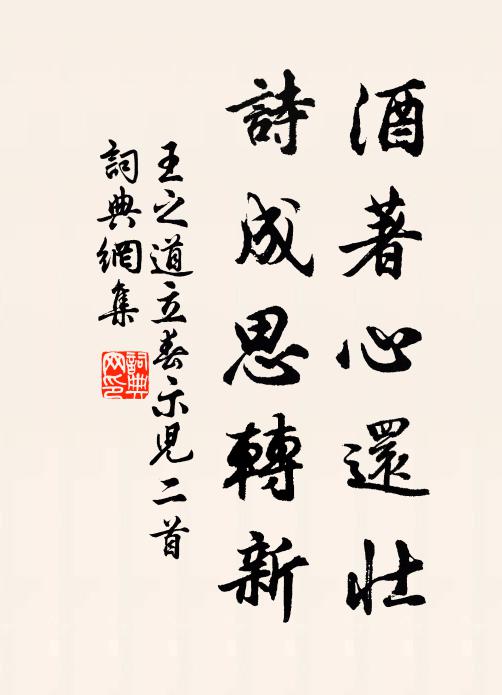 酒著心還壯
詩成思轉新
王之道立春示兒二首
詞典網集
詞典網印